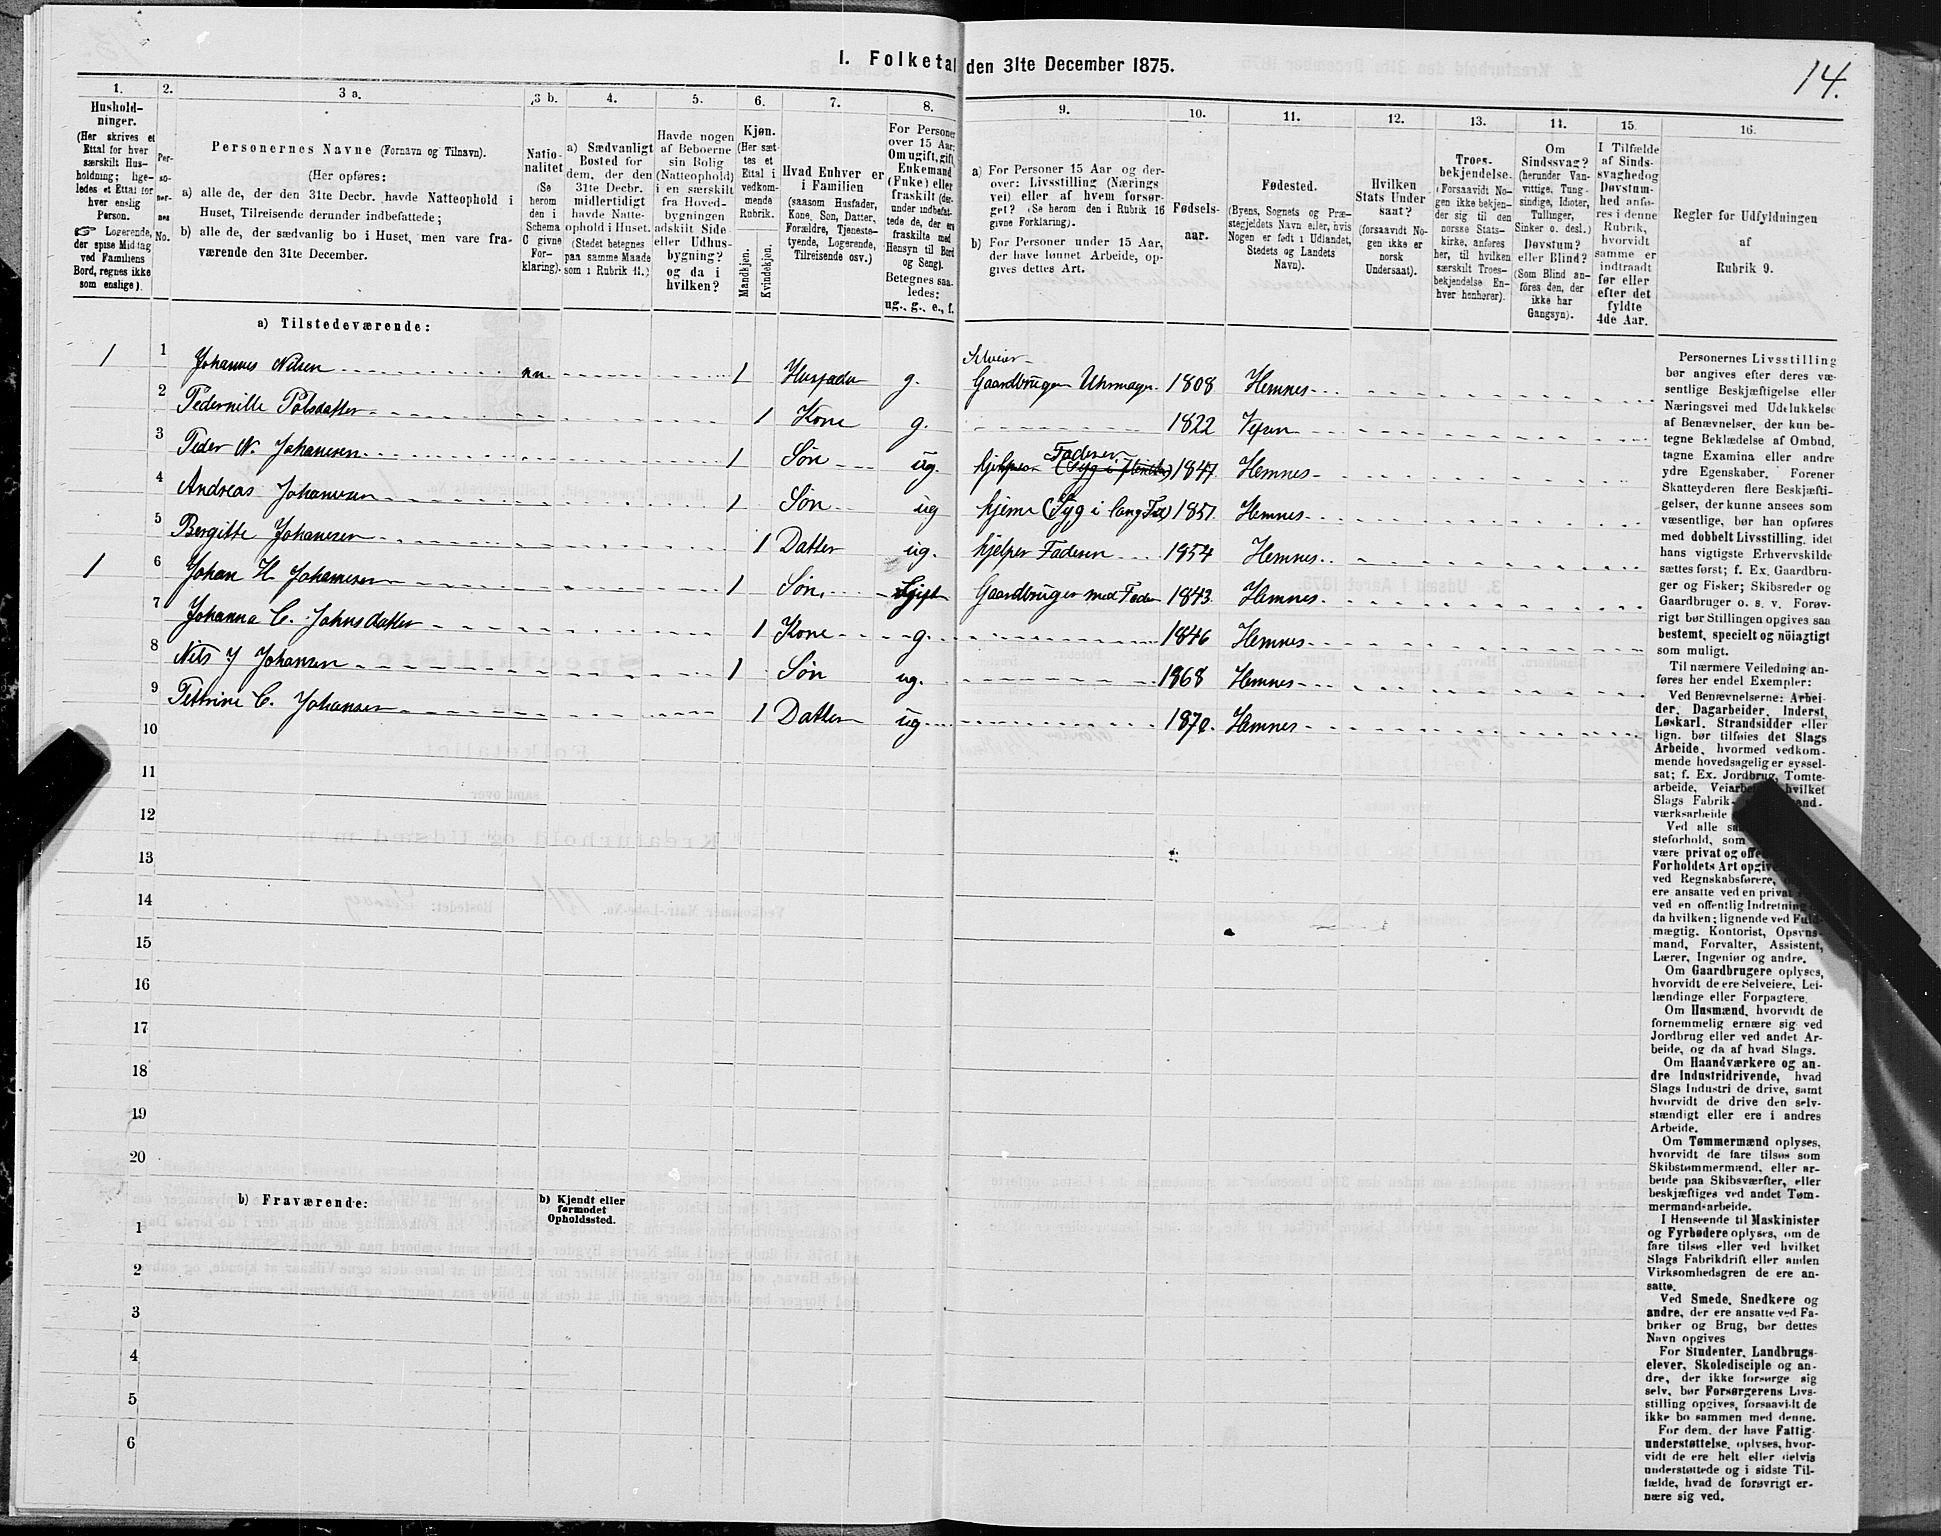 14.
I. Folketal den 31te December 1875.
1. 2. 3 a. 3 b. 4. 5. 6. 7. 8. 9. 10. 11. 12. 13. 14. 15. 16.
Hushold-
ninger.
(Her skrives et
Ettal for hver
særskilt Hus-
holdning; lige-
ledes et Ettal for
hver enslig
Person.
☞ Logerende,
der spise Middag
ved Familiens
Bord, regnes ikke
som enslige).
Per-
so-
ner-
nes
No.
Personernes Navne (Fornavn og Tilnavn).
(Her opføres:
a) alle de, der den 31te Decbr. havde Natteophold i
Huset, Tilreisende derunder indbefattede;
b) alle de, der sædvanlig bo i Huset, men vare fra-
værende den 31te December.
Natio-
nalitet
(Se
herom
den i
Schema
C givne
For-
klaring).
a) Sædvanligt
Bosted for
dem, der den
31te Decbr.
midlertidigt
havde Natte-
ophold i Huset.
(Stedet betegnes
paa samme Maade
som i Rubrik 11.)
Havde nogen
af Beboerne
sin Bolig
(Natteophold)
i en særskilt
fra Hoved-
bygningen
adskilt Side-
eller Udhus-
bygning?
og da i
hvilken?
Kjøn.
(Her sæt-
tes et
Ettal i
vedkom-
mende
Rubrik.
Mandkjøn.
Kvindekjøn.
Hvad Enhver er
i Familien
(saasom Husfader,
Kone, Søn, Datter,
Forældre, Tjeneste-
tyende, Logerende,
Tilreisende osv.)
For Personer
over 15 Aar:
Om ugift, gift,
Enkemand
(Enke) eller
fraskilt (der-
under indbefat-
tede de, der ere
fraskilte med
Hensyn til Bord
og Seng).
Betegnes saa-
ledes:
ug., g., e., f.
a) For Personer 15 Aar og der-
over: Livsstilling (Nærings-
vei) eller af hvem forsør-
get? (Se herom den i Rubrik 16
givne Forklaring).
b) For Personer under 15 Aar,
der have lønnet Arbeide, op-
gives dettes Art.
Fødsels-
aar.
Fødested.
(Byens, Sognets og Præ-
stegjeldets Navn eller, hvis
Nogen er født i Udlandet,
Stedets og Landets
Navn).
Hvilken
Stats Under-
saat?
(forsaavidt No-
gen ikke er
norsk
Undersaat).
Troes-
bekjendelse.
(Forsaavidt No-
gen ikke bekjen-
der sig til den
norske Stats-
kirke, anføres
her, til hvilken
særskilt Troes-
bekjendelse En-
hver henhører).
Om
Sindssvag?
(herunder Van-
vittige, Tung-
sindige, Idioter,
Tullinger,
Sinker o. desl.)
Døvstum?
eller Blind?
(Som Blind an-
føres den, der
ikke har
Gangsyn).
I Tilfælde
af Sinds-
svaghed og
Døvstum-
hed anfø-
res i denne
Rubrik,
hvorvidt
samme er
indtraadt
før eller
efter det
fyldte
4de Aar.
Regler for Udfyldningen
af
Rubrik 9.
a) Tilstedeværende:
1 1 Johannes Nilsen nn. 1 Husfader g. Selveier Gaardbruger Uhrmager. 1808 Hemnes
2 Pedernille Polsdatter 1 Kone g. 1822 Vefsen
3 Peder N. Johanesen 1 Søn ug. hjelper Faderen 1847 Hemnes
4 Andreas Johannesen 1 Søn ug hjeme (Syg i lang Tid) 1851. Hemnes
5 Bergitte Johanesen 1 Datter ug. hjelper Faderen 1854 Hemnes
1 6 Johan H. Johannesen 1 Søn, gift Gaardbruger med Fader 1843 Hemnes
7 Johanna C. Johnsdatter 1 Kone g. 1846 Hemnes
8 Nils J Johansen 1 Søn ug. 1868 Hemnes
9 Pettrine C. Johansen 1 Datter ug. 1870. Hemnes
10
11
12
13
14
15
16
17
18
19
20
b) Fraværende:
b) Kjendt eller
formodet
Opholdssted.
1
2
3
4
5
6
Personernes Livsstilling
bør angives efter deres væ-
sentlige Beskjæftigelse eller
Næringsvei med Udelukkelse
af Benævnelser, der kun be-
tegne Beklædelse af Ombud,
tagne Examina eller andre
ydre Egenskaber. Forener
Skatteyderen flere Beskjæfti-
gelser, der kunne ansees som
væsentlige, bør han opføres
med dobbelt Livsstilling, idet
hans vigtigste Erhvervskilde
sættes først; f. Ex. Gaardbru-
ger og Fisker; Skibsreder og
Gaardbruger o. s. v. Forøv-
rigt bør Stillingen opgives saa
bestemt, specielt og nøiagtigt
som muligt.
Til nærmere Veiledning an-
føres her endel Exempler:
Ved Benævnelserne: Arbei-
der, Dagarbeider, Inderst,
Løskarl, Strandsidder eller
lign. bør tilføies det Slags
Arbeide, hvormed vedkom-
mende hovedsagelig er syssel-
sat; f. Ex. Jordbrug, Tomte-
arbeide, Veiarbei hvilket
Slags Fabrik- and-
værksarbeide
Ved alle
steforhold, som
være privat og
Forholdets Art
ved Regnskabsførere,
ere ansatte ved en privat
ved en offentlig Indretning
da hvilken; lignende ved Fuld-
mægtig, Kontorist, Opsyns-
mand, Forvalter, Assistent,
Lærer, Ingeniør og andre.
Om Gaardbrugere oplyses,
hvorvidt de ere Selveiere, Lei-
lændinge eller Forpagtere.
Om Husmænd, hvorvidt de
fornemmelig ernære sig ved
Jordbrug eller ved andet Ar-
beide, og da af hvad Slags.
Om Haandværkere og an-
dre Industridrivende, hvad
Slags Industri de drive, samt
hvorvidt de drive den selv-
stændigt eller ere i andres
Arbeide.
Om Tømmermænd oplyses,
hvorvidt de fare tilsøs som
Skibstømmermænd, eller ar-
beide paa Skibsværfter, eller
beskjæftiges ved andet Tøm-
mermandsarbeide.
I Henseende til Maskinister
og Fyrbødere oplyses, om de
fare tilsøs eller ved hvilket
Slags Fabrikdrift eller anden
Virksomhedsgren de ere an-
satte.
Ved Smede, Snedkere og
andre, der ere ansatte ved Fa-
briker og Brug, bør dettes
Navn opgives
For Studenter, Landbrugs-
elever, Skoledisciple og an-
dre, der ikke forsørge sig
selv, bør Forsørgerens Livs-
stilling opgives, forsaavidt de
ikke bo sammen med denne.
For dem, der have Fattig-
understøttelse, oplyses, hvor-
vidt de ere helt eller delvis
understøttede og i sidste Til-
fælde, hvad de forøvrigt er-
nære sig ved.